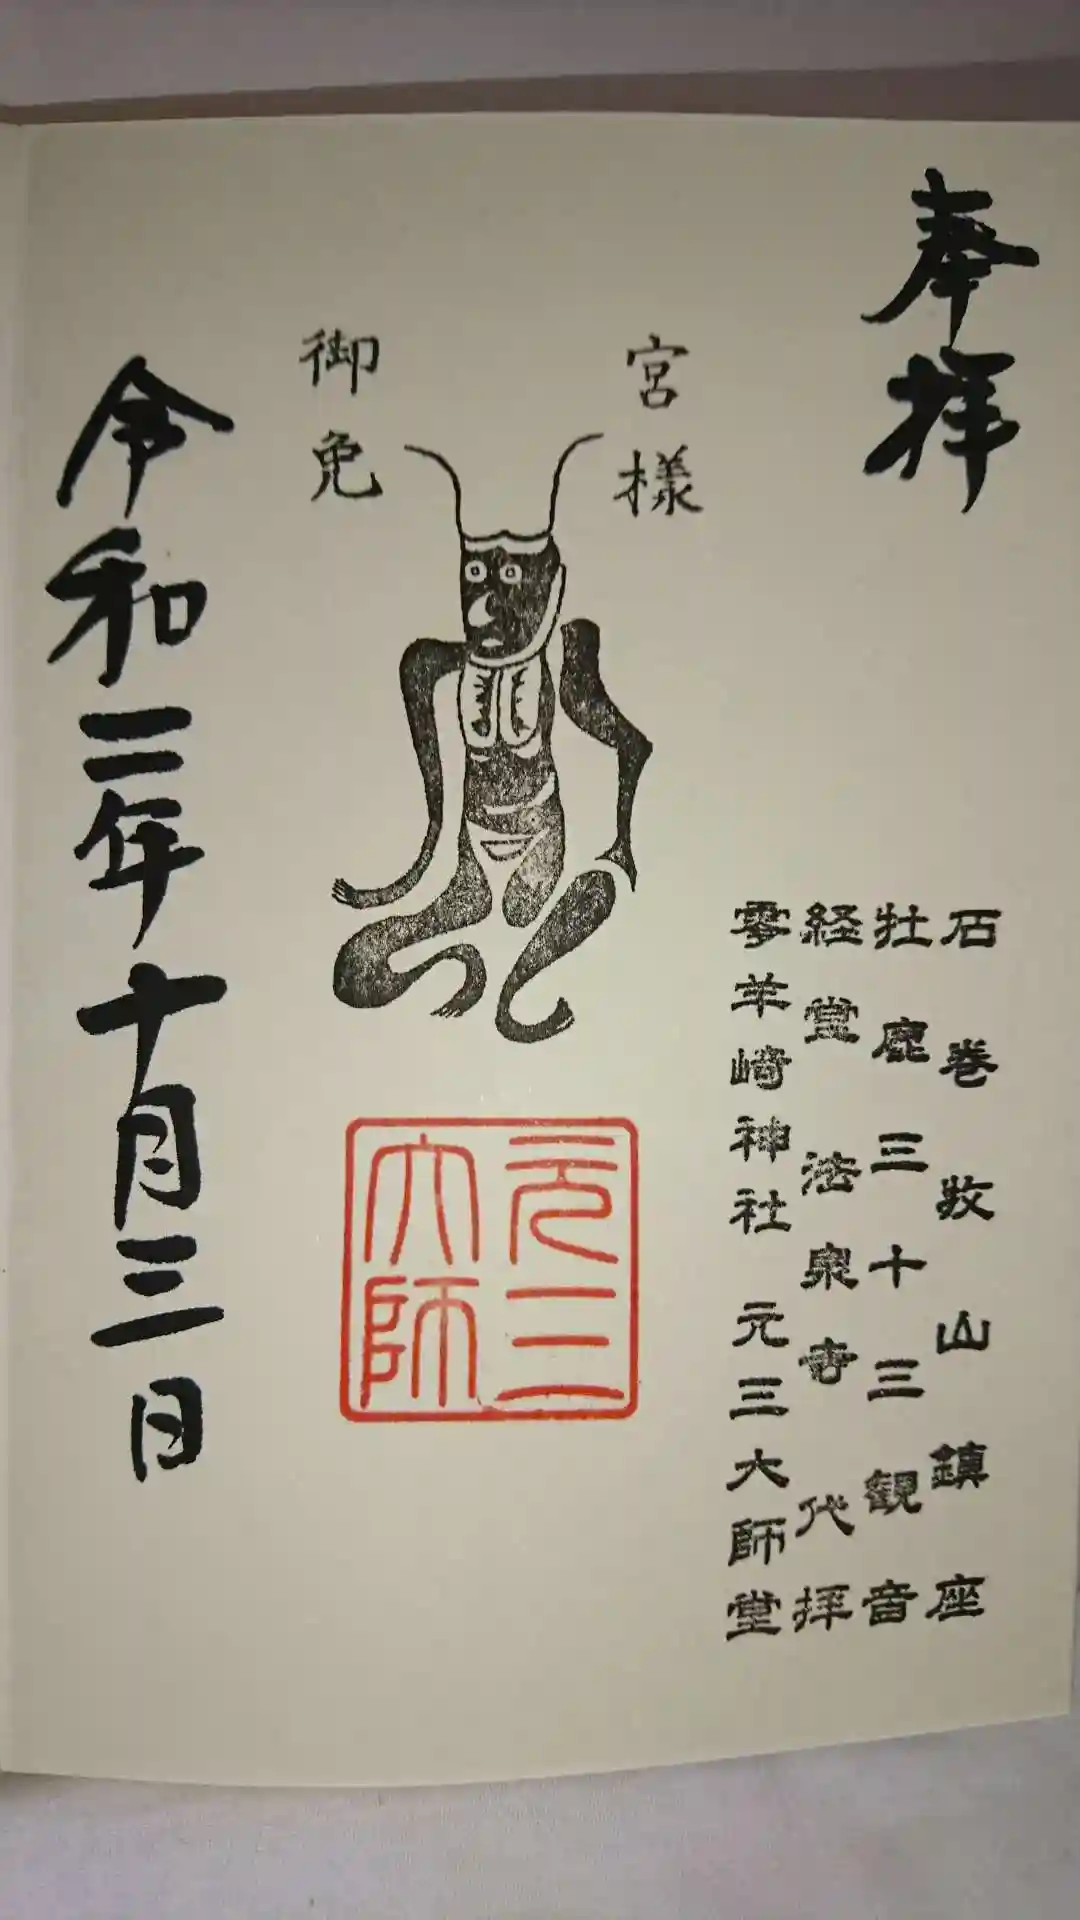 奉拝
石巻牧山鎮座
牡鹿三十三観音
経堂法泉寺代拝
零羊崎神社元三大師堂
宮様
御免
元三
大師
令和二年十月三日